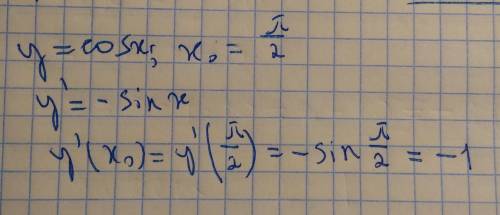 y = cosx; x₀ = π/2
y' = - sin x
y'(x₀) = y'(π/2) = -sin π/2 = -1